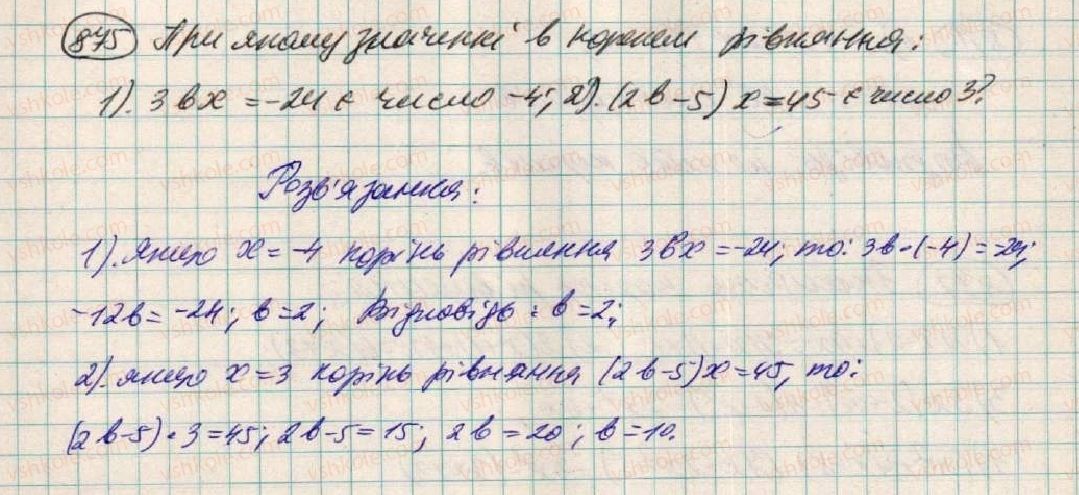 875 При якому значенні b коренем рівняння:
1). 3bx = -24 є число -4; 2). (2b-5)x=45 є число 3?
Розв'язання:
1). якщо x = -4 корінь рівняння 3bx = -24; то: 3b·(-4) = -24;
-12b = -24; b=2; Відповідь: b=2;
2). якщо x=3 корінь рівняння (2b-5)x=45, то:
(2b-5)·3=45; 2b-5=15; 2b=20; b=10.